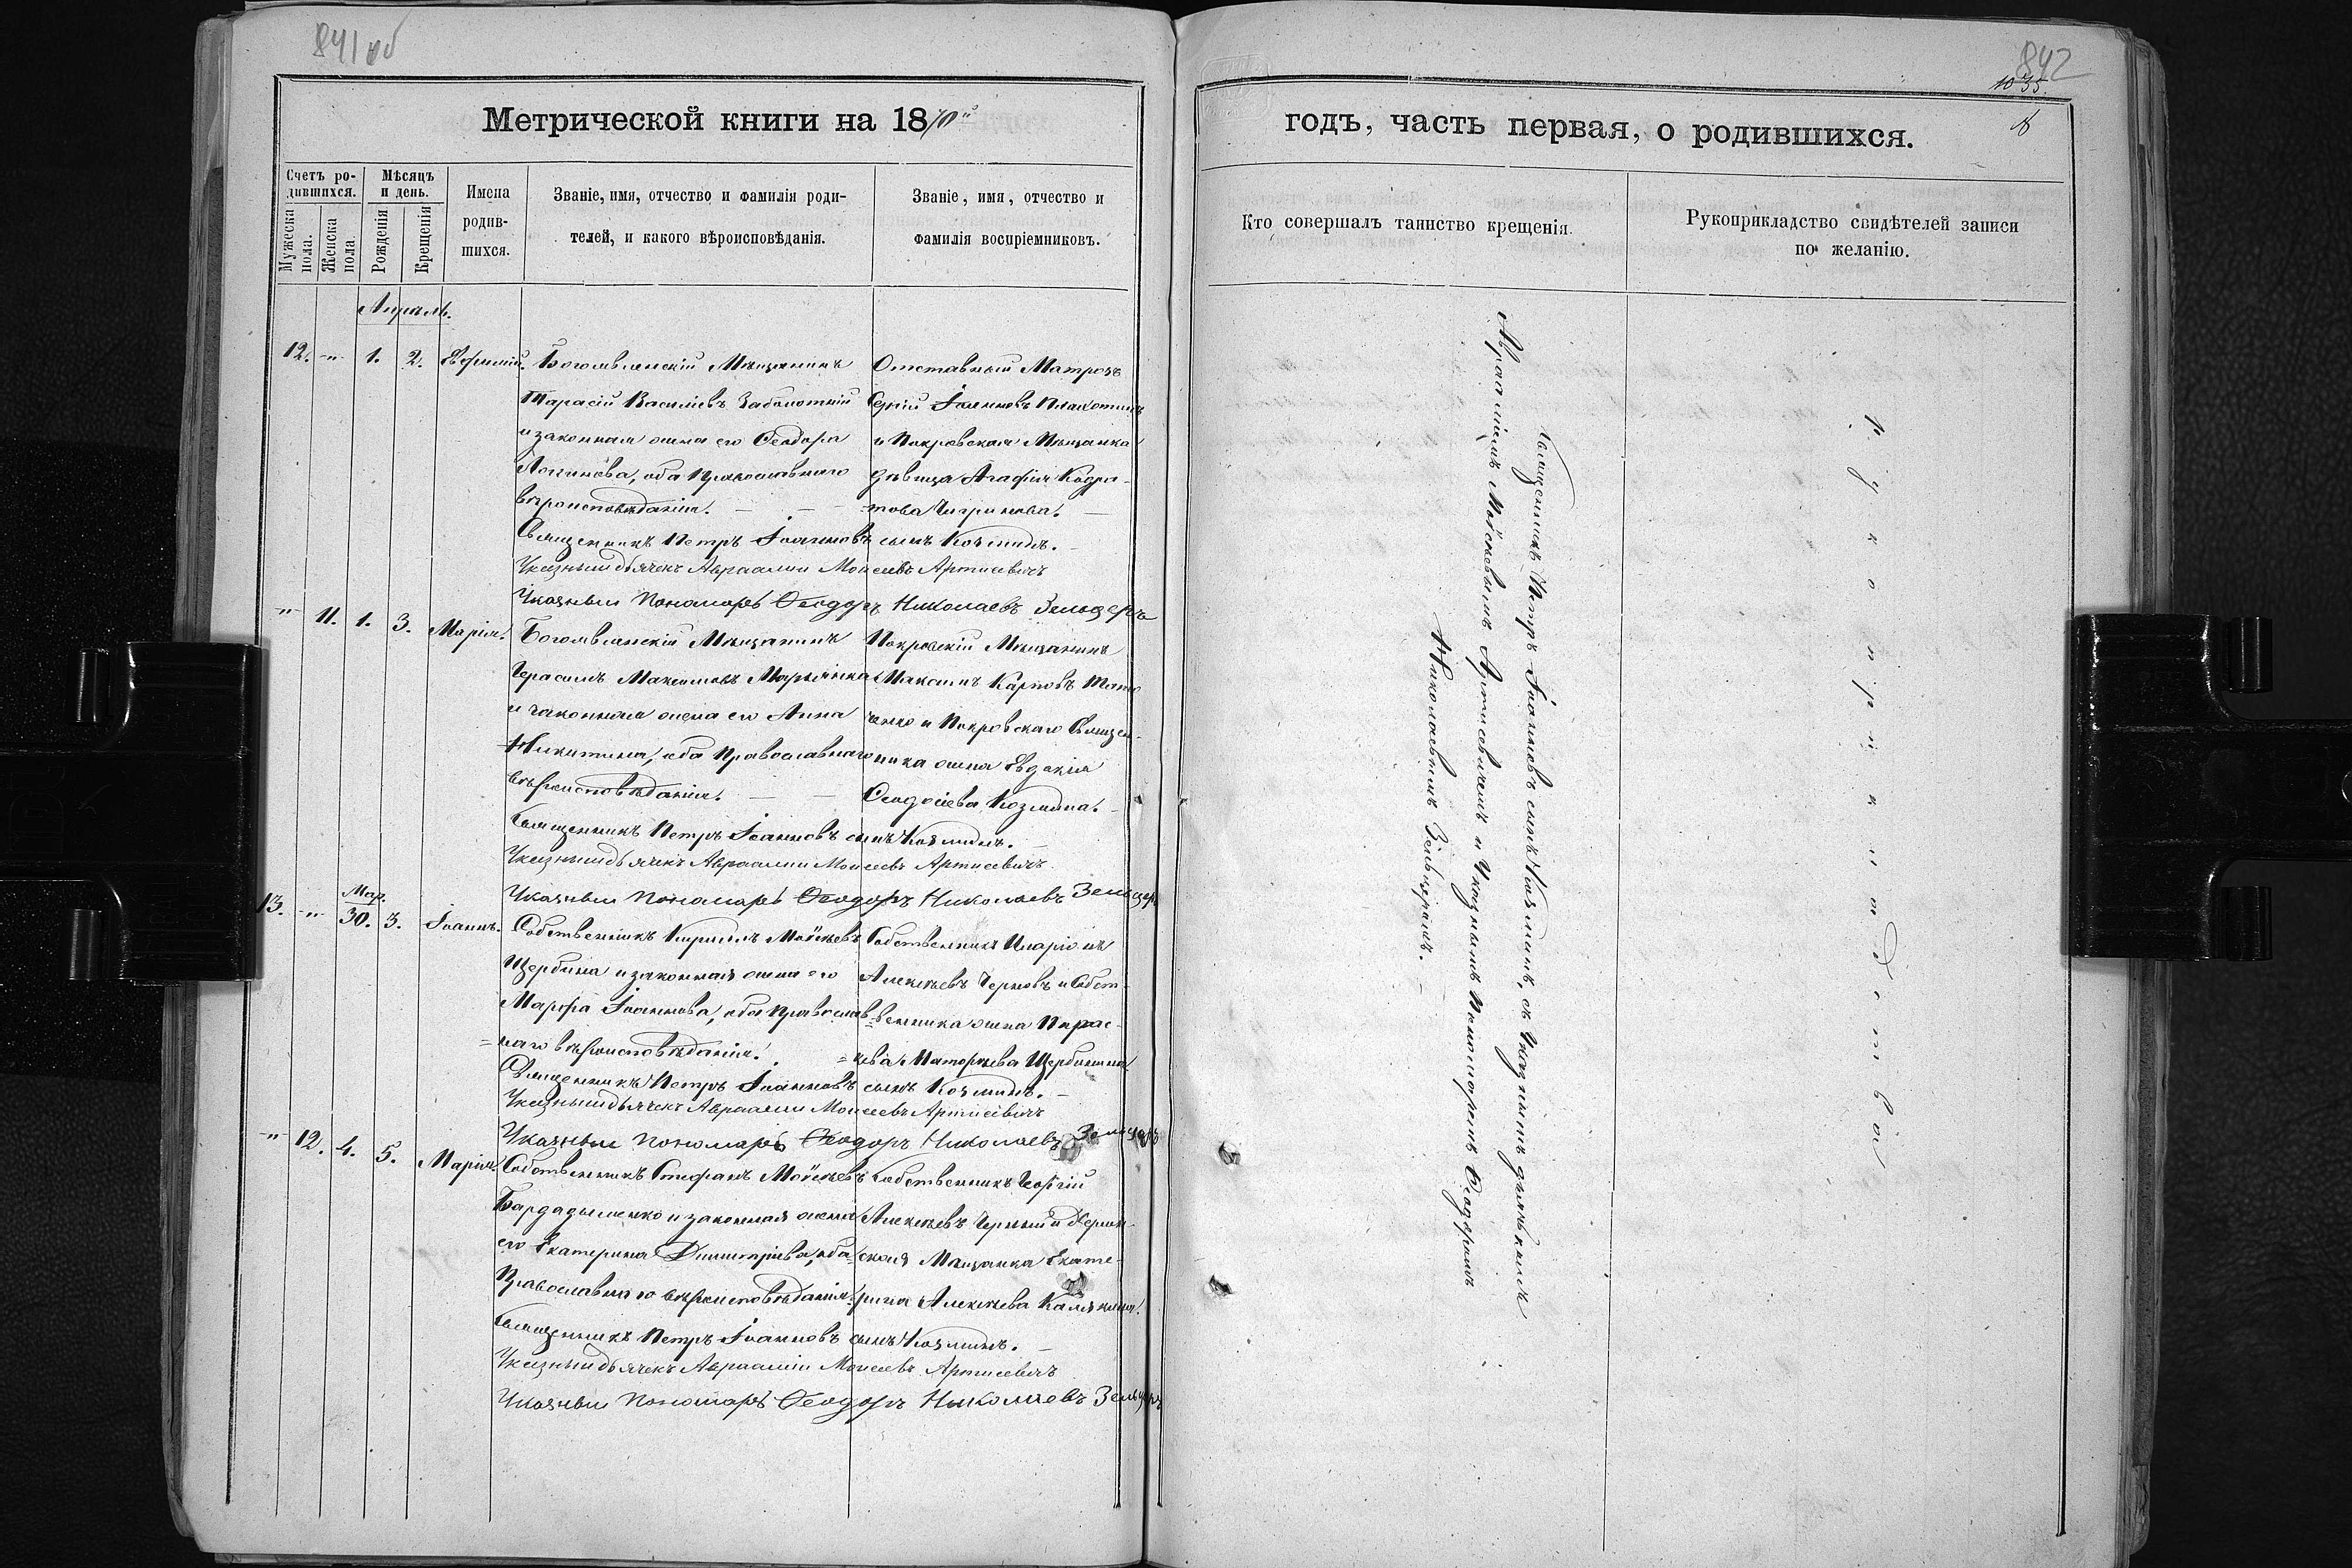 841 об
Метрической книги на 1870й
Счетъ ро-
дившихся.
Мѣсяцъ
и день.
Мужеска
пола.
Женска
пола.
Рожденія
Крещенія
Имена
родив-
шихся.
Званіе, имя, отчество и фамилія роди-
телей, и какого вѣроисповѣданія.
Званіе, имя, отчество и
фамилія воспріемниковъ.
Апрѣль.
12. -"- 1. 2. Евфимій. Богоявленскій Мѣщанинъ
Тарасій Васильевъ Заболотній
и законная жена его Ѳеодора
Логинова, оба Православнаго
вѣроисповѣданія. —
Отставный Матрозъ
Сергій Іоанновъ
и Покровская Мѣщанка
дѣвица Агафія Кодра-
това Чигринова. —
Священникъ Петръ Іоанновъ сынъ Козминъ. —
Указный дьячекъ Авраамій Моисеевъ Артисевичъ
Указный Пономарь Ѳеодоръ Николаевъ Зельцеръ
-"- 11. 1. 3. Марія. Богоявленскій Мѣщанинъ
Герасимъ Максимовъ
и законная жена его Анна
Никитина, оба Православнаго
вѣроисповѣданія. —
Покровскій Мѣщанинъ
Максимъ Карповъ
и Покровскаго Священ-
ника жена Евдокія
Ѳеодосіева Козмина. —
Священникъ Петръ Іоанновъ сынъ Козминъ. —
Указный дьячекъ Авраамій Моисеевъ Артисевичъ
Указный Пономарь Ѳеодоръ Николаевъ Зельцеръ
Мар.
13. -"- 30. 3. Іоаннъ. Собственникъ Кириллъ Моѵсѣевъ
Щербина и законная жена его
Марфа Іоаннова, оба Православ-
=наго вѣроисповѣданія.
Собственникъ Иларіонъ
Алексѣевъ Черновъ и Собст-
=венника жена Парас-
=кева Щербинина.
Священникъ Петръ Іоанновъ сынъ Козминъ. —
Указный дьячекъ Авраамій Моисеевъ Артисевичъ
Указный Пономарь Ѳеодоръ Николаевъ Зельцеръ
-"- 12. 4. 5. Марія. Собственникъ Стефанъ Моѵсѣевъ
Бардадыменко и законная жена
его Екатерина Димитріева, оба
Православнаго вѣроисповѣданія.
Собственникъ Георгій
Алексѣевъ Черный и Херсон-
ская Мѣщанка Екате-
рина Алексѣева
Священникъ Петръ Іоанновъ сынъ Козминъ. —
Указный дьячекъ Авраамій Моисеевъ Артисевичъ
Указный Пономарь Ѳеодоръ Николаевъ Зельцеръ
842
1035.
годъ, часть первая, о родившихся.
Кто совершалъ таинство крещенія.
Рукоприкладство свидѣтелей записи
по желанію.
Священникъ Петръ Іоанновъ сынъ Козминъ, съ Указнымъ дьячькомъ
Авраамiемъ Моѵсѣевымъ Артисевичемъ и Указнымъ Пономаремъ Ѳеодоромъ
Николаевымъ Зельцеромъ. —